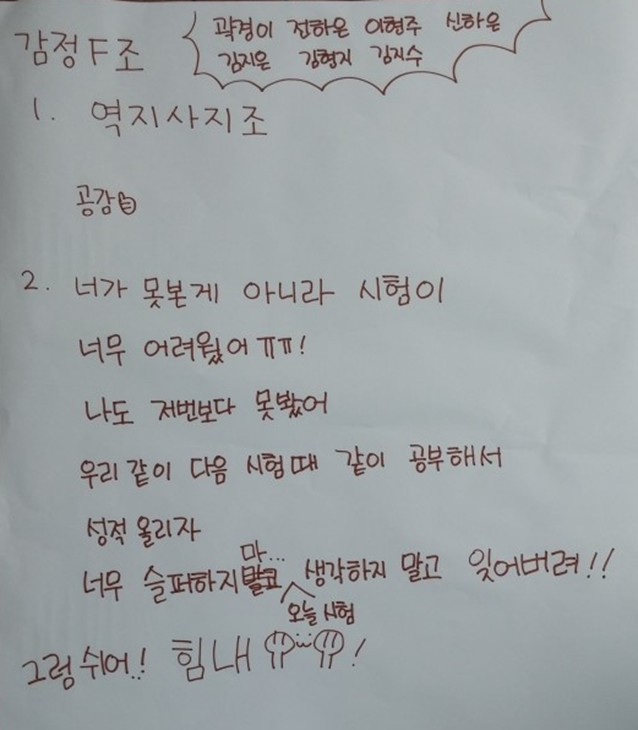 감정F조
곽경이 전하은 이형주 신하은
김지은 김형지 김지수
1. 역지사지조
공감
2. 너가 못본게 아니라 시험이
너무 어려웠어 ㅠㅠ!
나도 저번보다 못봤어
우리 같이 다음 시험때 같이 공부해서
성적 올리자
너무 슬퍼하지 마... 오늘 시험 생각하지 말고 잊어버려!!
그럼 쉬어..! 힘내!